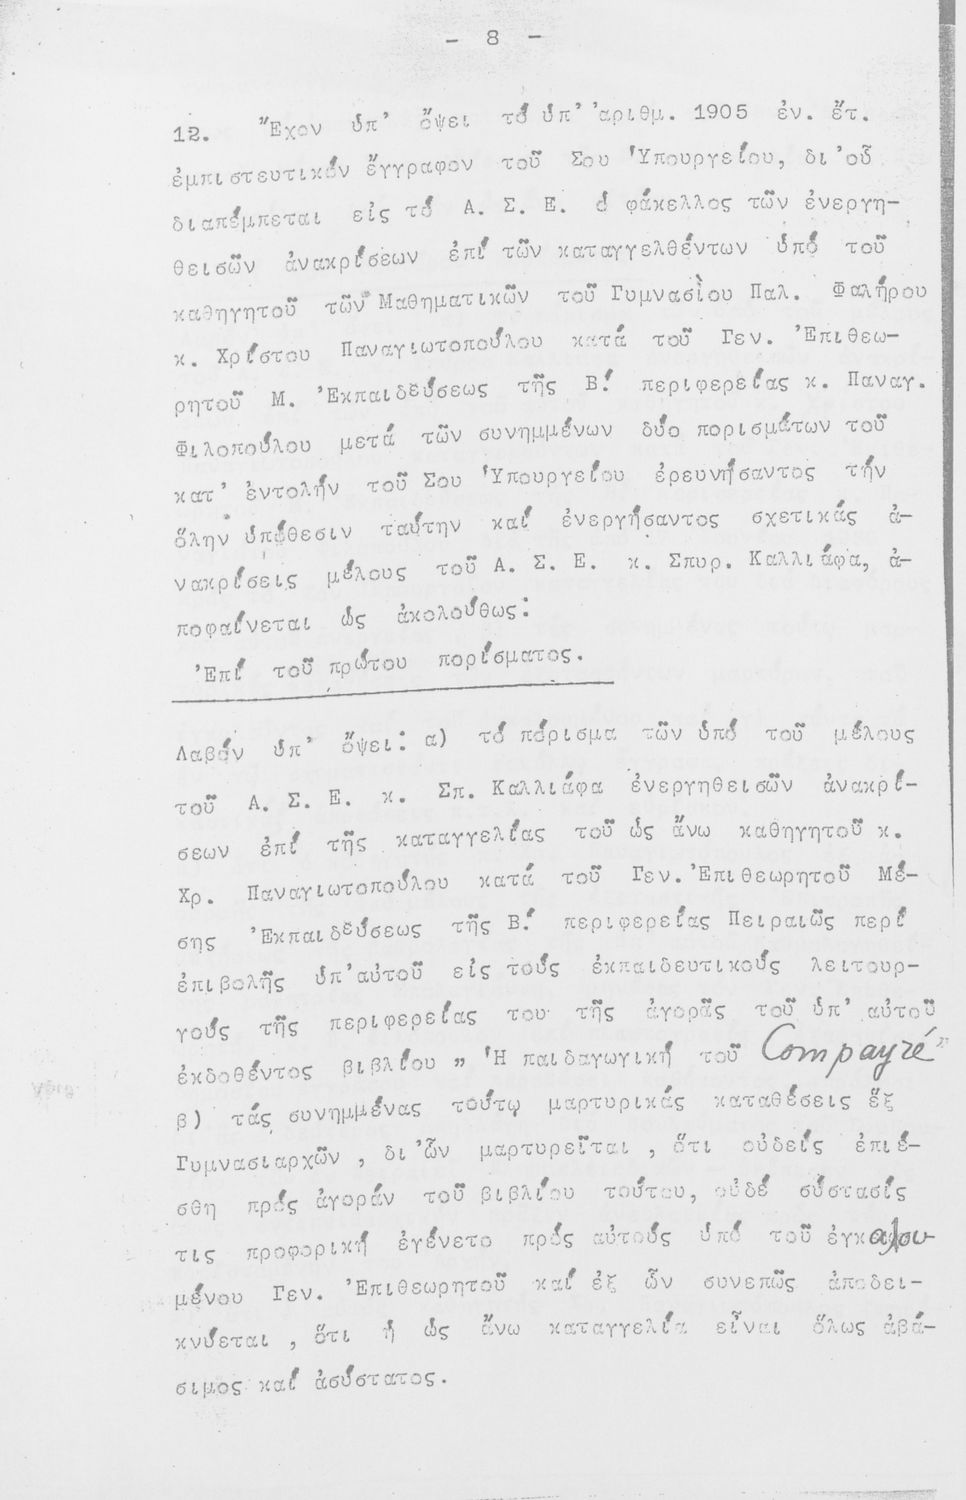 - 8 -
12. Ἔχον ὑπ' ὄψει τό ὑπ' ἀριθμ. 1905 ἐν. ἔτ.
ἐμπιστευτικόν ἔγγραφον τοῦ Σου Ὑπουργείου, δι'οὗ
διαπέμπεται εἰς τό Α. Σ. Ε. ὁ φάκελλος τῶν ἐνεργη-
θεισῶν ἀνακρίσεων ἐπί τῶν καταγγελθέντων ὑπό τοῦ
καθηγητοῦ τῶν Μαθηματικῶν τοῦ Γυμνασίου Παλ. Φαλήρου
κ. Χρίστου Παναγιωτοπούλου κατά τοῦ Γεν. Ἐπιθεω-
ρητοῦ Μ. Ἐκπαιδεύσεως τῆς Β! περιφερείας κ. Παναγ.
Φιλοπούλου μετά τῶν συνημμένων δύο πορισμάτων τοῦ
κατ' ἐντολήν τοῦ Σου Ὑπουργείου ἐρευνήσαντος τήν
ὅλην ὑπόθεσιν ταύτην καί ἐνεργήσαντος σχετικάς ἀ-
νακρίσεις μέλους τοῦ Α. Σ. Ε. κ. Σπυρ. Καλλιάφα, ἀ-
ποφαίνεται ὡς ἀκολούθως:
Ἐπί τοῦ πρώτου πορίσματος.
Λαβόν ὑπ' ὄψει: α) τό πόρισμα τῶν ὑπό τοῦ μέλους
τοῦ Α. Σ. Ε. κ. Σπ. Καλλιάφα ἐνεργηθεισῶν ἀνακρί-
σεων ἐπί τῆς καταγγελίας τοῦ ὡς ἄνω καθηγητοῦ κ.
Χρ. Παναγιωτοπούλου κατά τοῦ Γεν. Ἐπιθεωρητοῦ Μέ-
σης Ἐκπαιδεύσεως τῆς Β! περιφερείας Πειραιῶς περί
ἐπιβολῆς ὑπ'αὐτοῦ εἰς τούς ἐκπαιδευτικούς λειτουρ-
γούς τῆς περιφερείας του τῆς ἀγορᾶς τοῦ ὑπ' αὐτοῦ
ἐκδοθέντος βιβλίου " Ἡ παιδαγωγική τοῦ Compayré "
β) τάς συνημμένας τούτῳ μαρτυρικάς καταθέσεις ἕξ
Γυμνασιαρχῶν , δι'ὧν μαρτυρεῖται , ὅτι οὐδείς ἐπιέ-
σθη πρός ἀγοράν τοῦ βιβλίου τούτου, οὐδέ σύστασίς
τις προφορική ἐγένετο πρός αὐτούς ὑπό τοῦ ἐγκαλου-
μένου Γεν. Ἐπιθεωρητοῦ καί ἐξ ὧν συνεπῶς ἀποδει-
κνύεται , ὅτι ἡ ὡς ἄνω καταγγελία εἶναι ὅλως ἀβά-
σιμος καί ἀσύστατος.